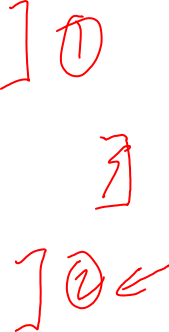 ] ①
]
] ② ←